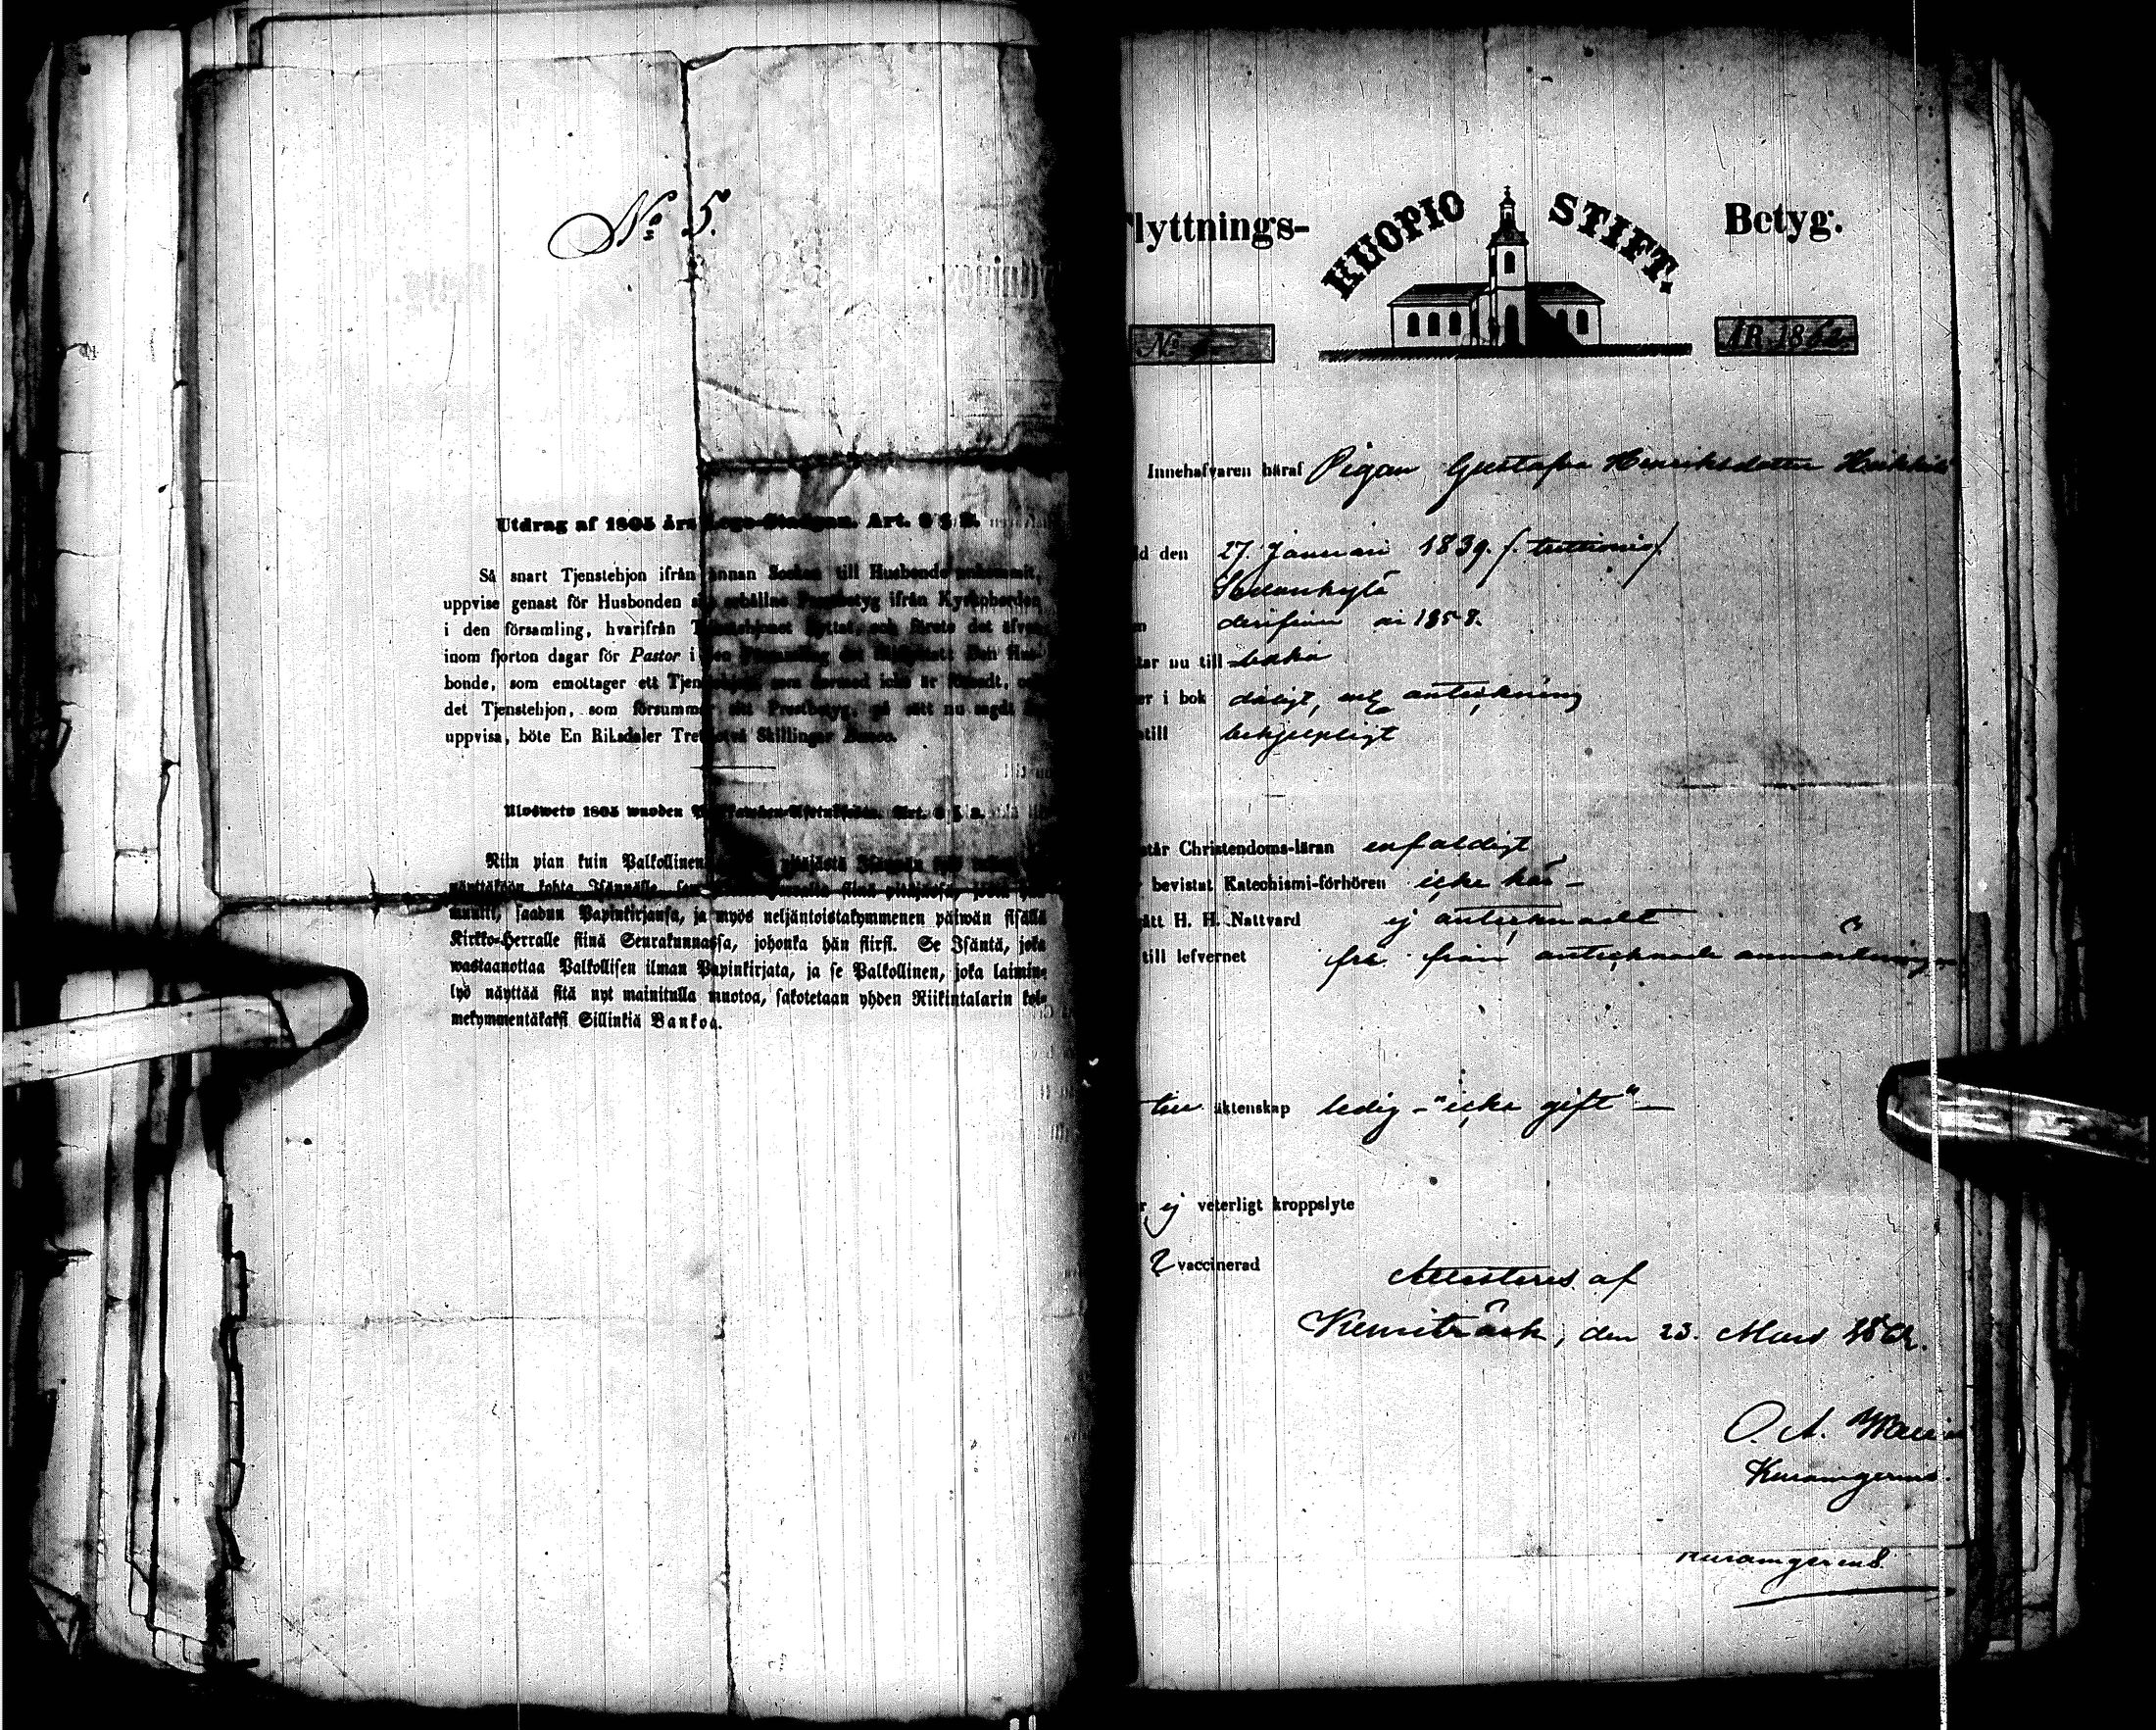 № 5.
Utdrag af 1805 års Lego-Stadgan. Art. 6 § 2.
Så snart Tjenstehjon ifrån annan Socken till Husbonde ankommit,
uppvise genast för Husbonden erhållne Prestbetyg ifrån Kyrkoherden
i den församling, hvarifrån Tjenstehjonet flyttat, och förete det äfven
inom fjorton dagar för Pastor i den Församling
bonde, som emottager ett Tjenstehjon, som dermed icke är försedt, och
det Tjenstehjon, som försummar sitt Prestbetyg, på sätt nu sagdt är
uppvisa, böte En Riksdaler Trettiotvå Skillingar Banco.
Ulosweto 1805 wuoden Art. 6 § 2.
Niin pian kuin Palkollinen pitäjästä
näyttäköön kohta Isännälle, sen siinä pitäjässä, josta
muutti, saadun Papinkirjansa, ja myös neljäntoistakymmenen päiwän sisällä
Kirkko-Herralle siinä Seurakunnassa, johonka hän siirsi. Se Isäntä, joka
wastaanottaa Palkollisen ilman Papinkirjata, ja se Palkollinen, joka laimin-
lyö näyttää sitä nyt mainitulla muotoa, sakotetaan yhden Riikintalarin kol-
mekymmentäkaksi Sillinkiä Bankoa.
lyttnings-
KUOPIO STIFT.
Betyg.
№
ÅR 1862
Innehafvaren häraf Pigan Gustafva Henriksdotter Heikkilä
d den 27. Januari 1839.
Sodankylä
derifrån år 1858.
tar nu till baka
er i bok dåligt, anteckning
till behjelpligt
står Christendoms-läran enfaldigt
bevistat Katechismi-förhören icke här –
ått H. H. Nattvard ej antecknadt
till lefvernet fri från antecknade anmärkningar
äktenskap ledig – "icke gift" –
r ej veterligt kroppslyte
vaccinerad
Attesteras af
Kemiträsk, den 23. Mars 1862.
O. A.